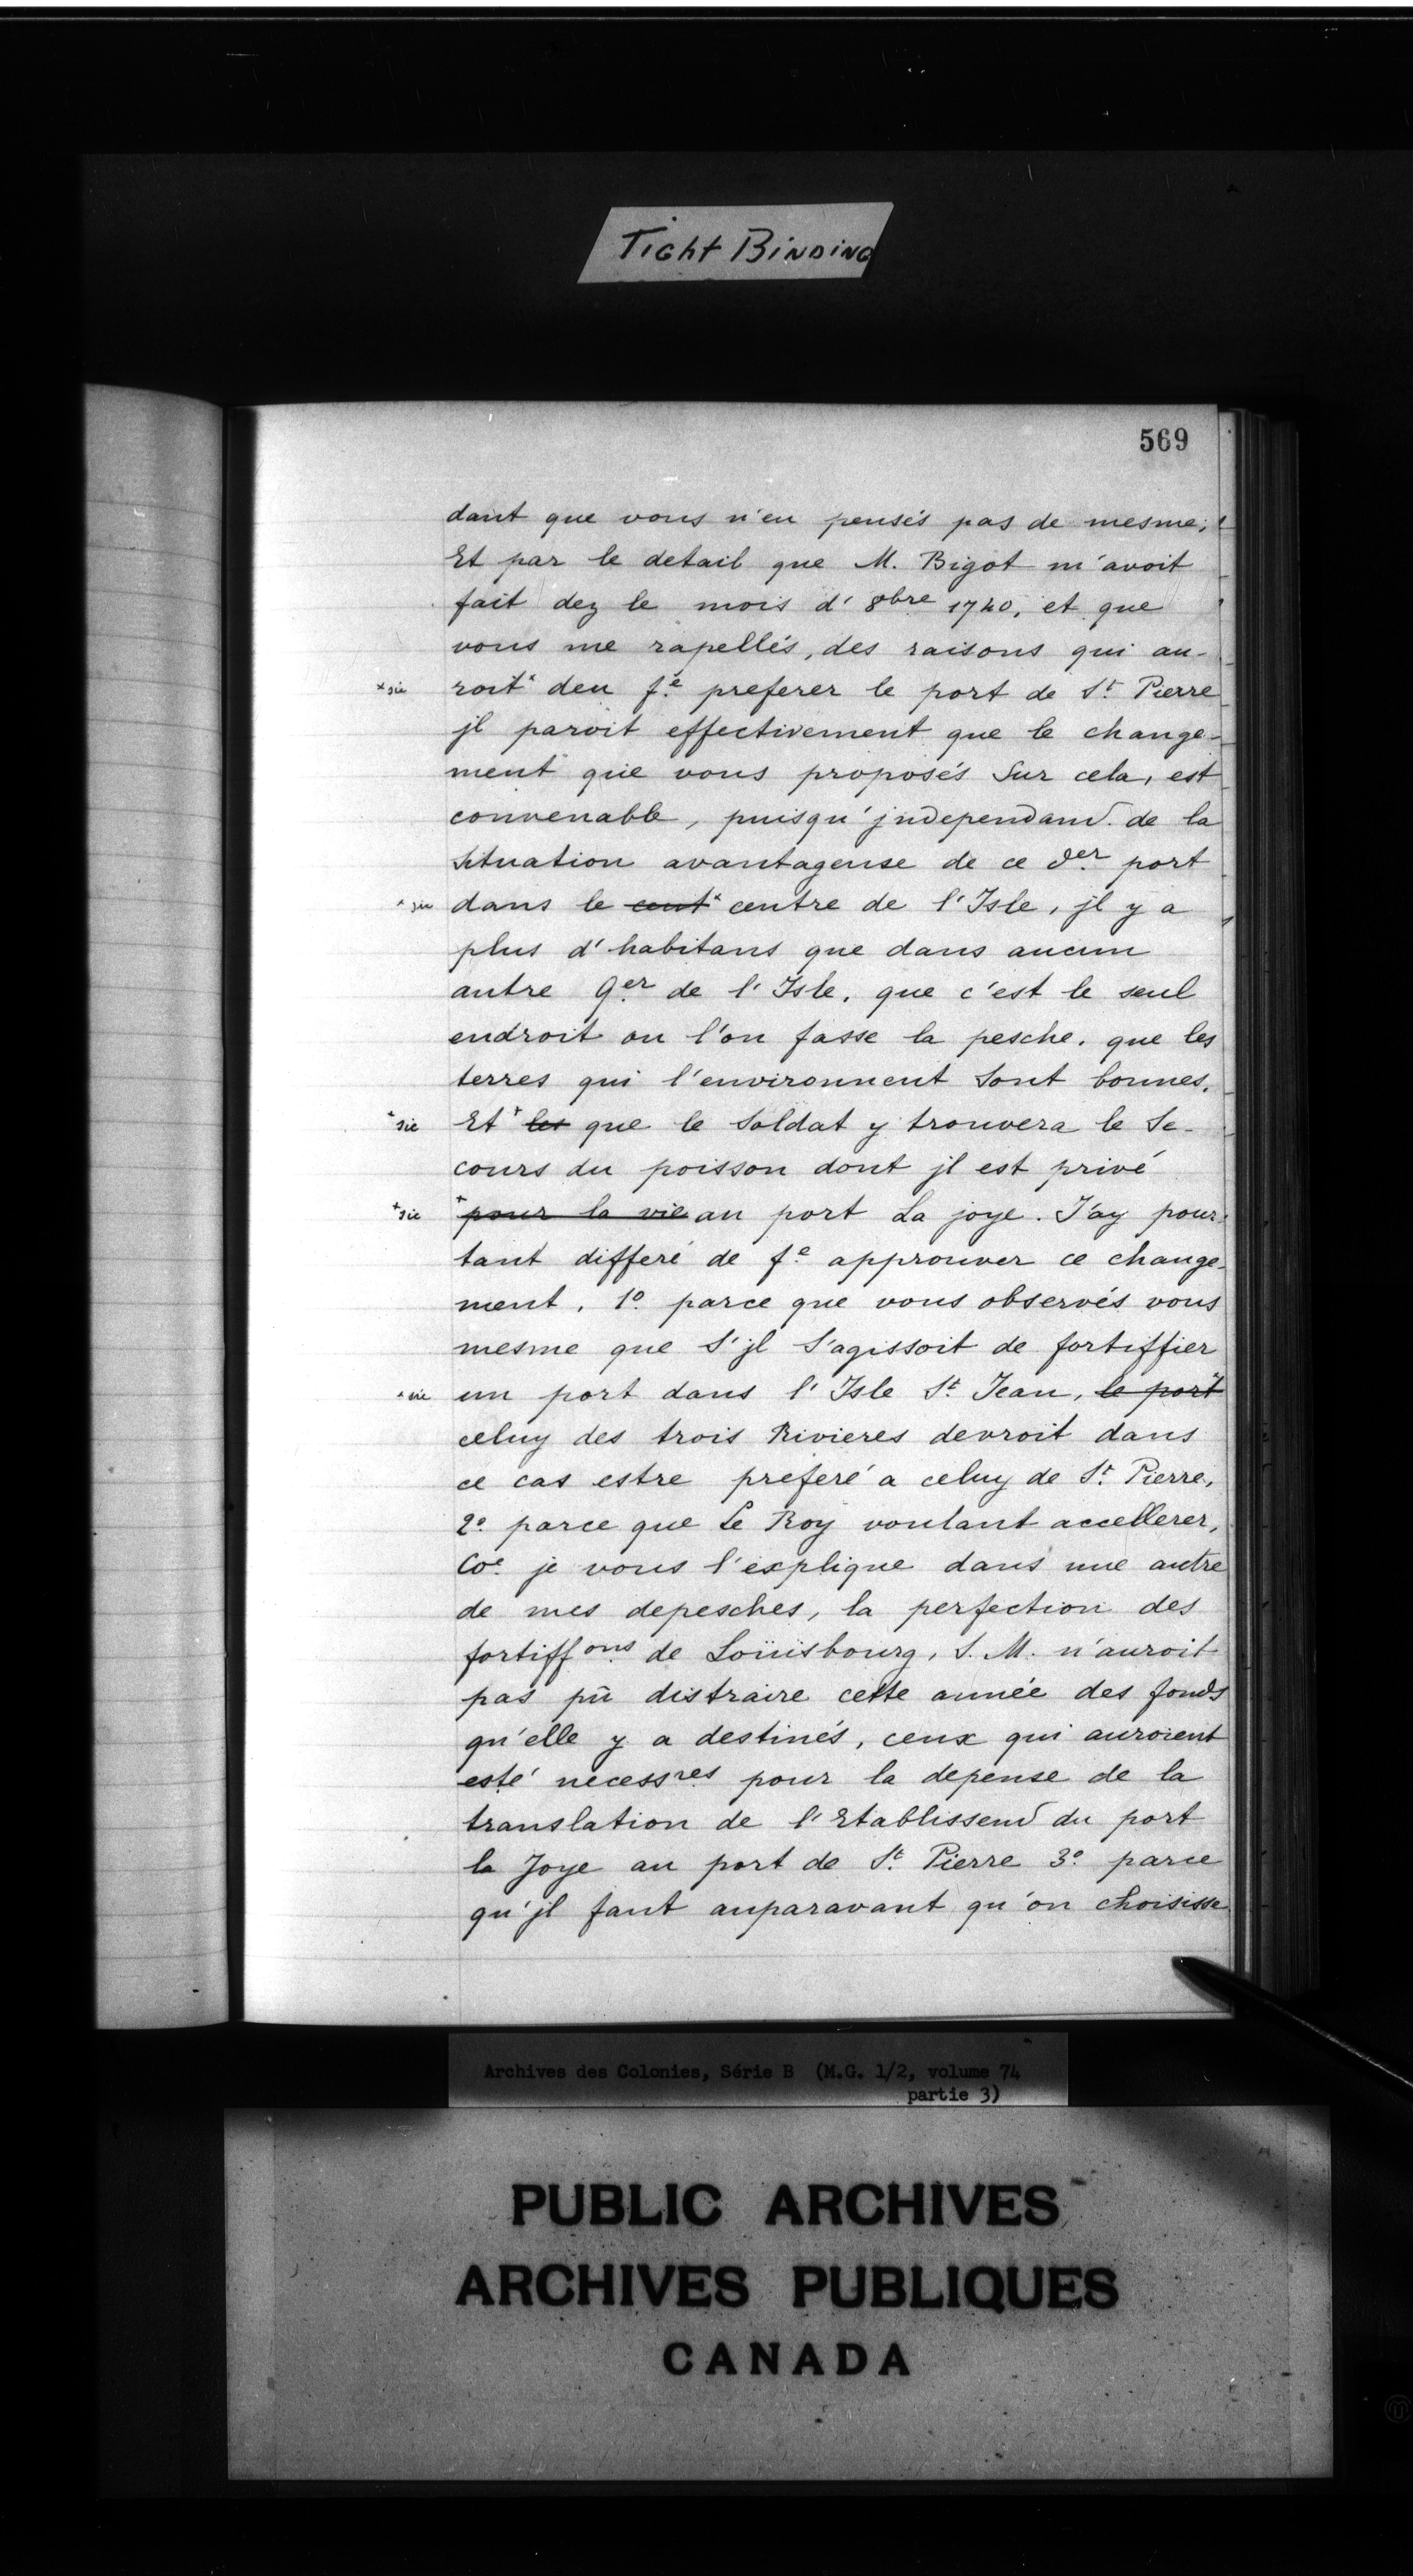 Tight Binding
569
dant que vous n'en pensés pas de mesme;
Et par le detail que M. Bigot m'avoit
fait dez le mois d' 8bre 1740, et que
vous me rapellés, des raisons qui au-
*sic roit* deu fe preferer le port de St Pierre
jl paroit effectivement que le change-
ment que vous proposés Sur cela, est
convenable, puisqu'jndependamt de la
Situation avantageuse de ce der port
*sic dans le cent* centre de l'Isle, jl y a
plus d'habitans que dans aucun
autre qer de l'Isle, que c'est le seul
endroit ou l'on fasse la pesche, que les
terres qui l'environnent Sont bonnes,
*sic Et * les que le Soldat y trouvera le Se-
cours du poisson dont jl est privé
*sic *pour la vie au port La joye. J'ay pour-
tant differé de fe approuver ce change-
ment, 1o parce que vous observés vous
mesme que S'jl S'agissoit de fortiffier
*sic un port dans l'Isle St Jean, le port*
celuy des trois Rivieres devroit dans
ce cas estre preferé a celuy de St Pierre,
2o parce que Le Roy voulant accellerer,
Coe je vous l'explique dans une autre
de mes depesches, la perfection des
fortiffons de Loüisbourg, S. M. n'auroit
pas pû distraire cette année des fonds
qu'elle y a destinés, ceux qui auroient
esté necessres pour la depense de la
translation de l'Etablissemt du port
la Joye au port de St Pierre 3o parce
qu'jl faut auparavant qu'on choisisse
Archives des Colonies, Série B (M.G. 1/2, volume 74
partie 3)
PUBLIC ARCHIVES
ARCHIVES PUBLIQUES
CANADA